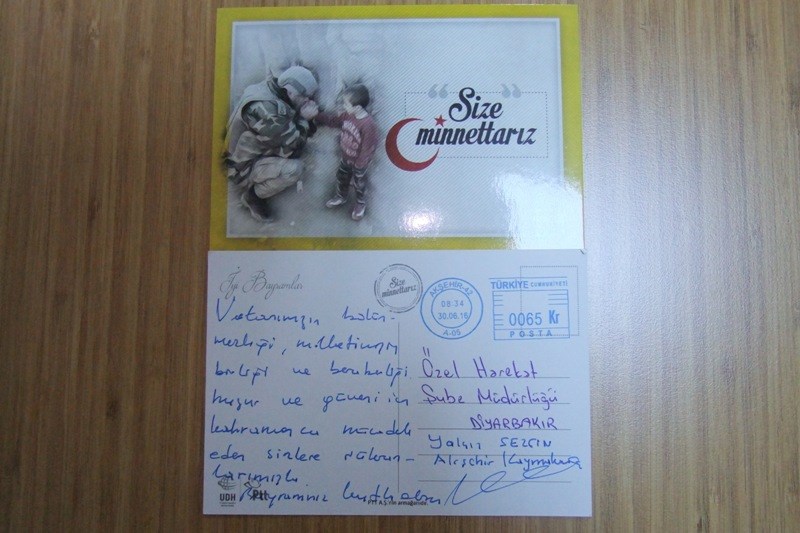 "Size
minnettarız
İyi Bayramlar
Size
minnettarız
AKŞEHİR-42
08:34
30.06.16
A-05
TÜRKİYE CUMHURİYETİ
0065 Kr
POSTA
Vatanımızın bölün-
mezliği, milletimizin
birliği ve beraberliği
huzur ve güveni için
kahramanca mücadele
eden sizlere
Bayramınız kutlu olsun
Özel Harekat
Şube Müdürlüğü
DİYARBAKIR
Yalçın SEZGİN
Akşehir Kaymakamı
UDH
Ptt
PTT A.Ş.'nin armağanıdır.